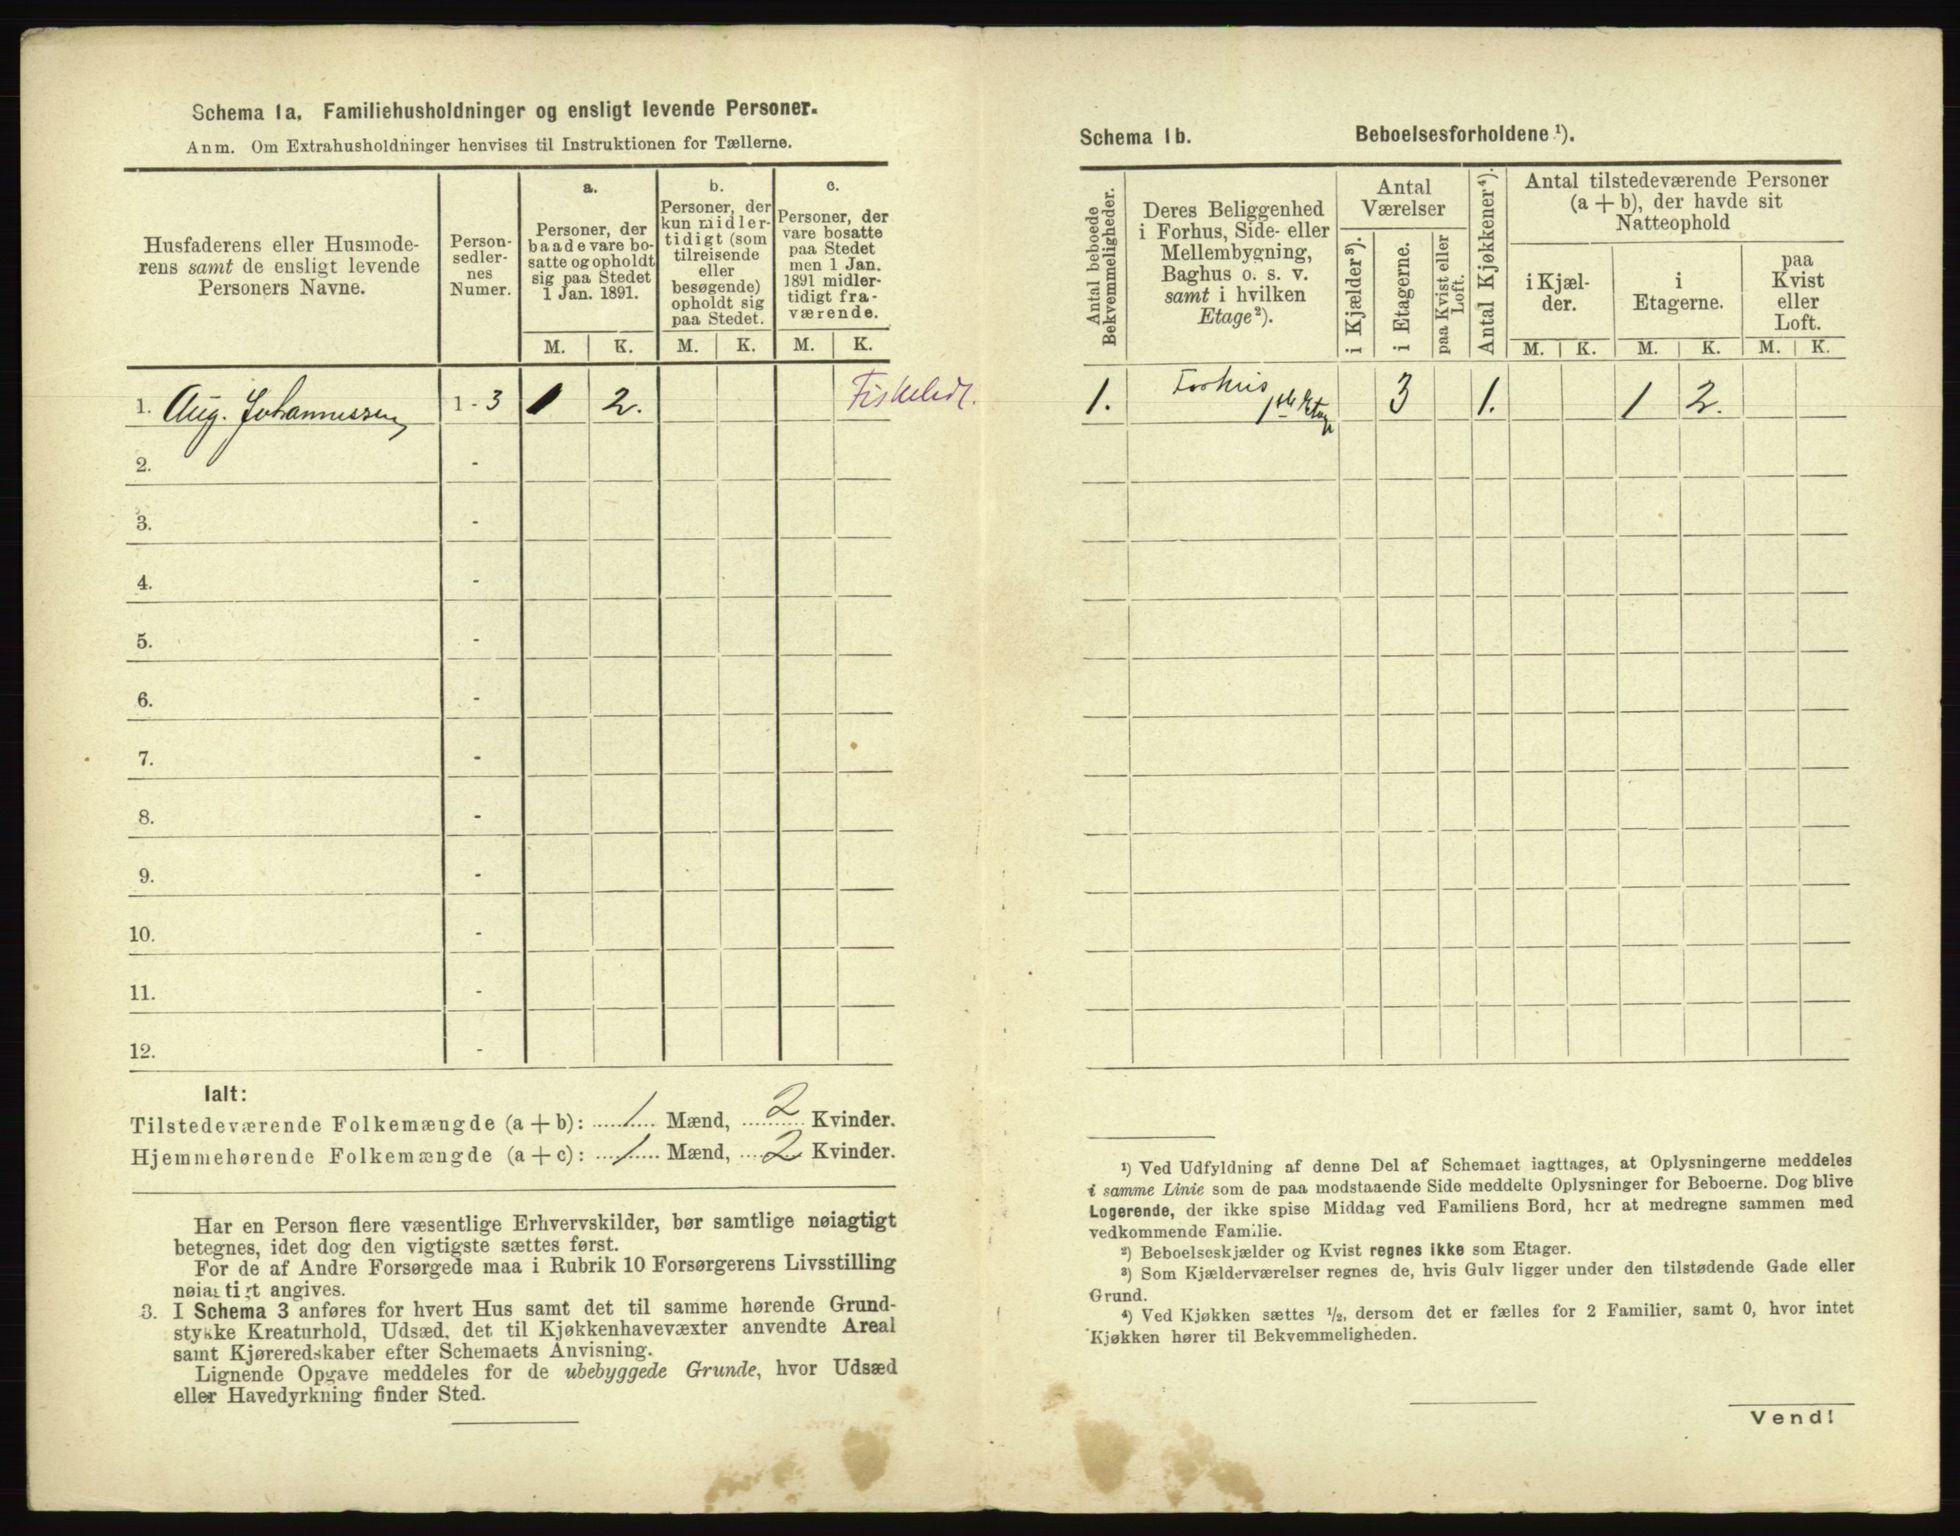 Schema 1a. Familiehusholdninger og ensligt levende Personer.
Anm. Om Extrahusholdninger henvises til Instruktionen for Tællerne.
Husfaderens eller Husmode-
rens samt de ensligt levende
Personers Navne.
Person-
sedler-
nes
Numer.
a.
Personer, der
baade vare bo-
satte og opholdt
sig paa Stedet
1 Jan. 1891.
b.
Personer, der
kun midler-
tidigt (som
tilreisende
eller
besøgende)
opholdt sig
paa Stedet.
c.
Personer, der
vare bosatte
paa Stedet
men 1 Jan.
1891 midler-
tidigt fra-
værende.
M. K. M. K. M. K.
1. Aug. Johannessen 1 - 3 1 2.
2. -
3. -
4. -
5. -
6. -
7. -
8. -
9. -
10. -
11. -
12. -
Ialt:
Tilstedeværende Folkemængde (a + b): 1 Mænd, 2 Kvinder.
Hjemmehørende Folkemængde (a + c): 1 Mænd, 2 Kvinder.
Har en Person flere væsentlige Erhvervskilder, bør samtlige nøiagtigt
betegnes, idet dog den vigtigste sættes først.
For de af Andre Forsørgede maa i Rubrik 10 Forsørgerens Livsstilling
nøiagtigt angives.
3. I Schema 3 anføres for hvert Hus samt det til samme hørende Grund-
stykke Kreaturhold, Udsæd, det til Kjøkkenhavevæxter anvendte Areal
samt Kjøreredskaber efter Schemaets Anvisning.
Lignende Opgave meddeles for de ubebyggede Grunde, hvor Udsæd
eller Havedyrkning finder Sted.
Schema 1b. Beboelsesforholdene ¹).
Antal beboede
Bekvemmeligheder.
Deres Beliggenhed
i Forhus, Side- eller
Mellembygning,
Baghus o. s. v.
samt i hvilken
Etage²).
Antal
Værelser
i Kjælder³).
i Etagerne.
paa Kvist eller
Loft.
Antal Kjøkkener⁴).
Antal tilstedeværende Personer
(a + b), der havde sit
Natteophold
i Kjæl-
der.
i
Etagerne.
paa
Kvist
eller
Loft.
M. K. M. K. M. K.
1. Forhus
1ste Etage 3 1. 1 2.
¹) Ved Udfyldning af denne Del af Schemaet iagttages, at Oplysningerne meddeles
i samme Linie som de paa modstaaende Side meddelte Oplysninger for Beboerne. Dog blive
Logerende, der ikke spise Middag ved Familiens Bord, her at medregne sammen med
vedkommende Familie.
²) Beboelseskjælder og Kvist regnes ikke som Etager.
³) Som Kjælderværelser regnes de, hvis Gulv ligger under den tilstødende Gade eller
Grund.
⁴) Ved Kjøkken sættes ½, dersom det er fælles for 2 Familier, samt 0, hvor intet
Kjøkken hører til Bekvemmeligheden.
Vend!